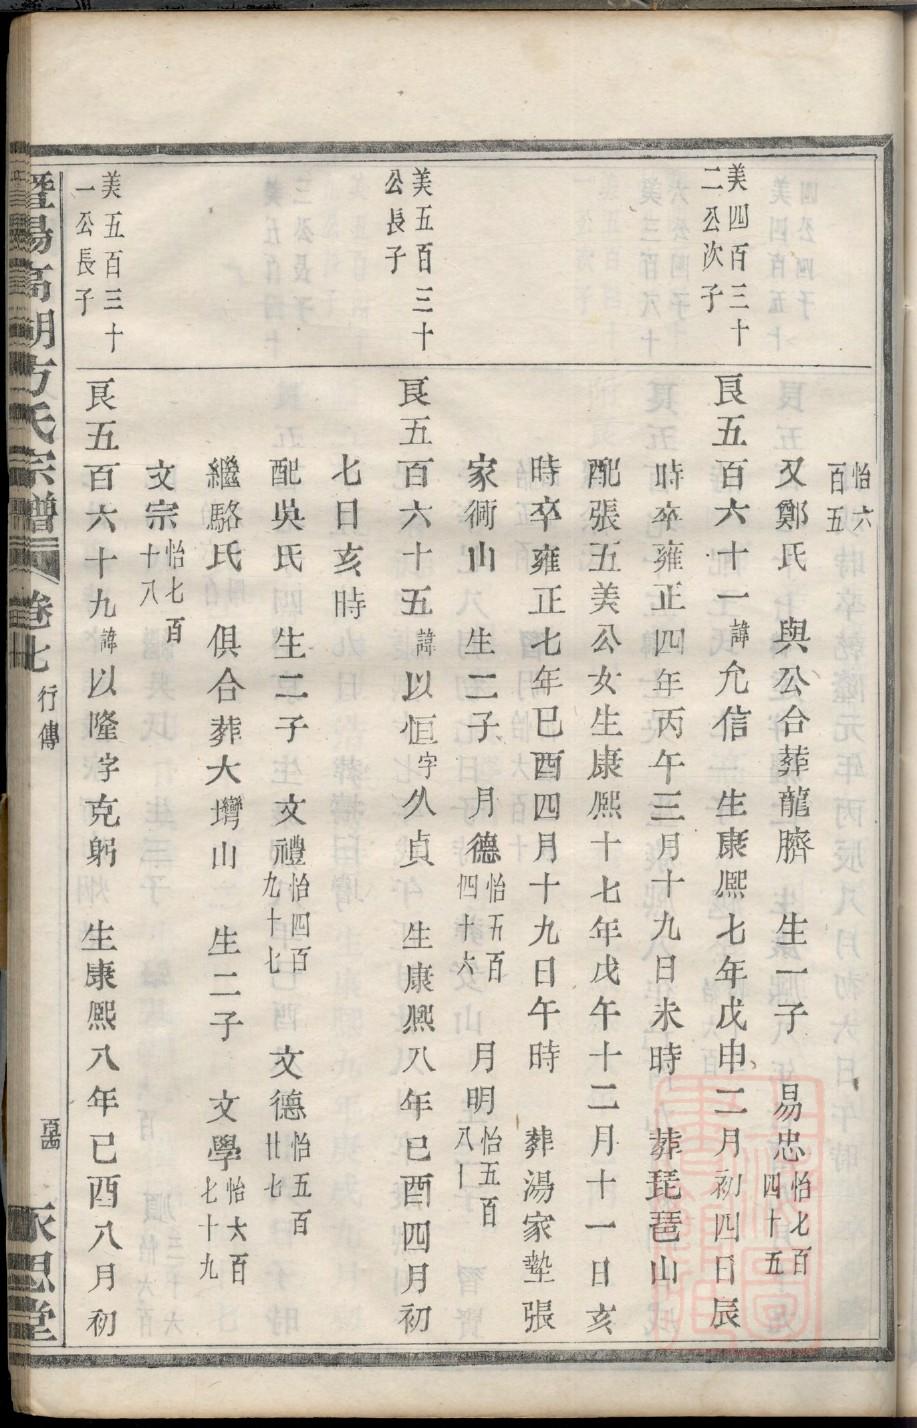 怡六
百五
又鄭氏　與公合葬龍臍　生一子　易忠怡七百四十五
美四百三十
二公次子
良五百六十一諱允信　生康熙七年戊申二月初四日辰
時卒雍正四年丙午三月十九日未時　葬琵琶山
配張五美公女生康熙十七年戊午十二月十一日亥
時卒雍正七年已酉四月十九日午時　葬湯家墊張
家衕山　生二子　月德怡五百四十六　月明怡五百八十
美五百三十
公長子
良五百六十五諱以恒字久貞　生康熙八年已酉四月初
七日亥時
配吳氏　生二子　文禮怡四百九十七　文德怡五百廿七
繼駱氏　俱合葬大塆山　生二子　文學怡六百七十九
文宗怡七百十八
美五百三十
一公長子
良五百六十九諱以隆字克躬　生康熙八年已酉八月初
暨陽高湖方氏宗譜　卷七　行傳　永思堂